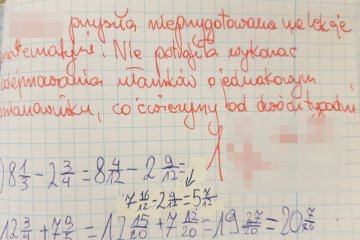 przyszła nieprzygotowana na lekcję
matematyki. Nie potrafiła wykonać
odejmowania ułamków o jednakowym
mianowniku, co ćwiczymy od dwóch tygodni
1
) 8 1/3 - 2 3/4 = 8 4/12 - 2 9/12 =
7 16/12 - 2 9/12 = 5 7/12
12 3/4 + 7 3/5 = 12 15/20 + 7 12/20 = 19 27/20 = 20 7/20